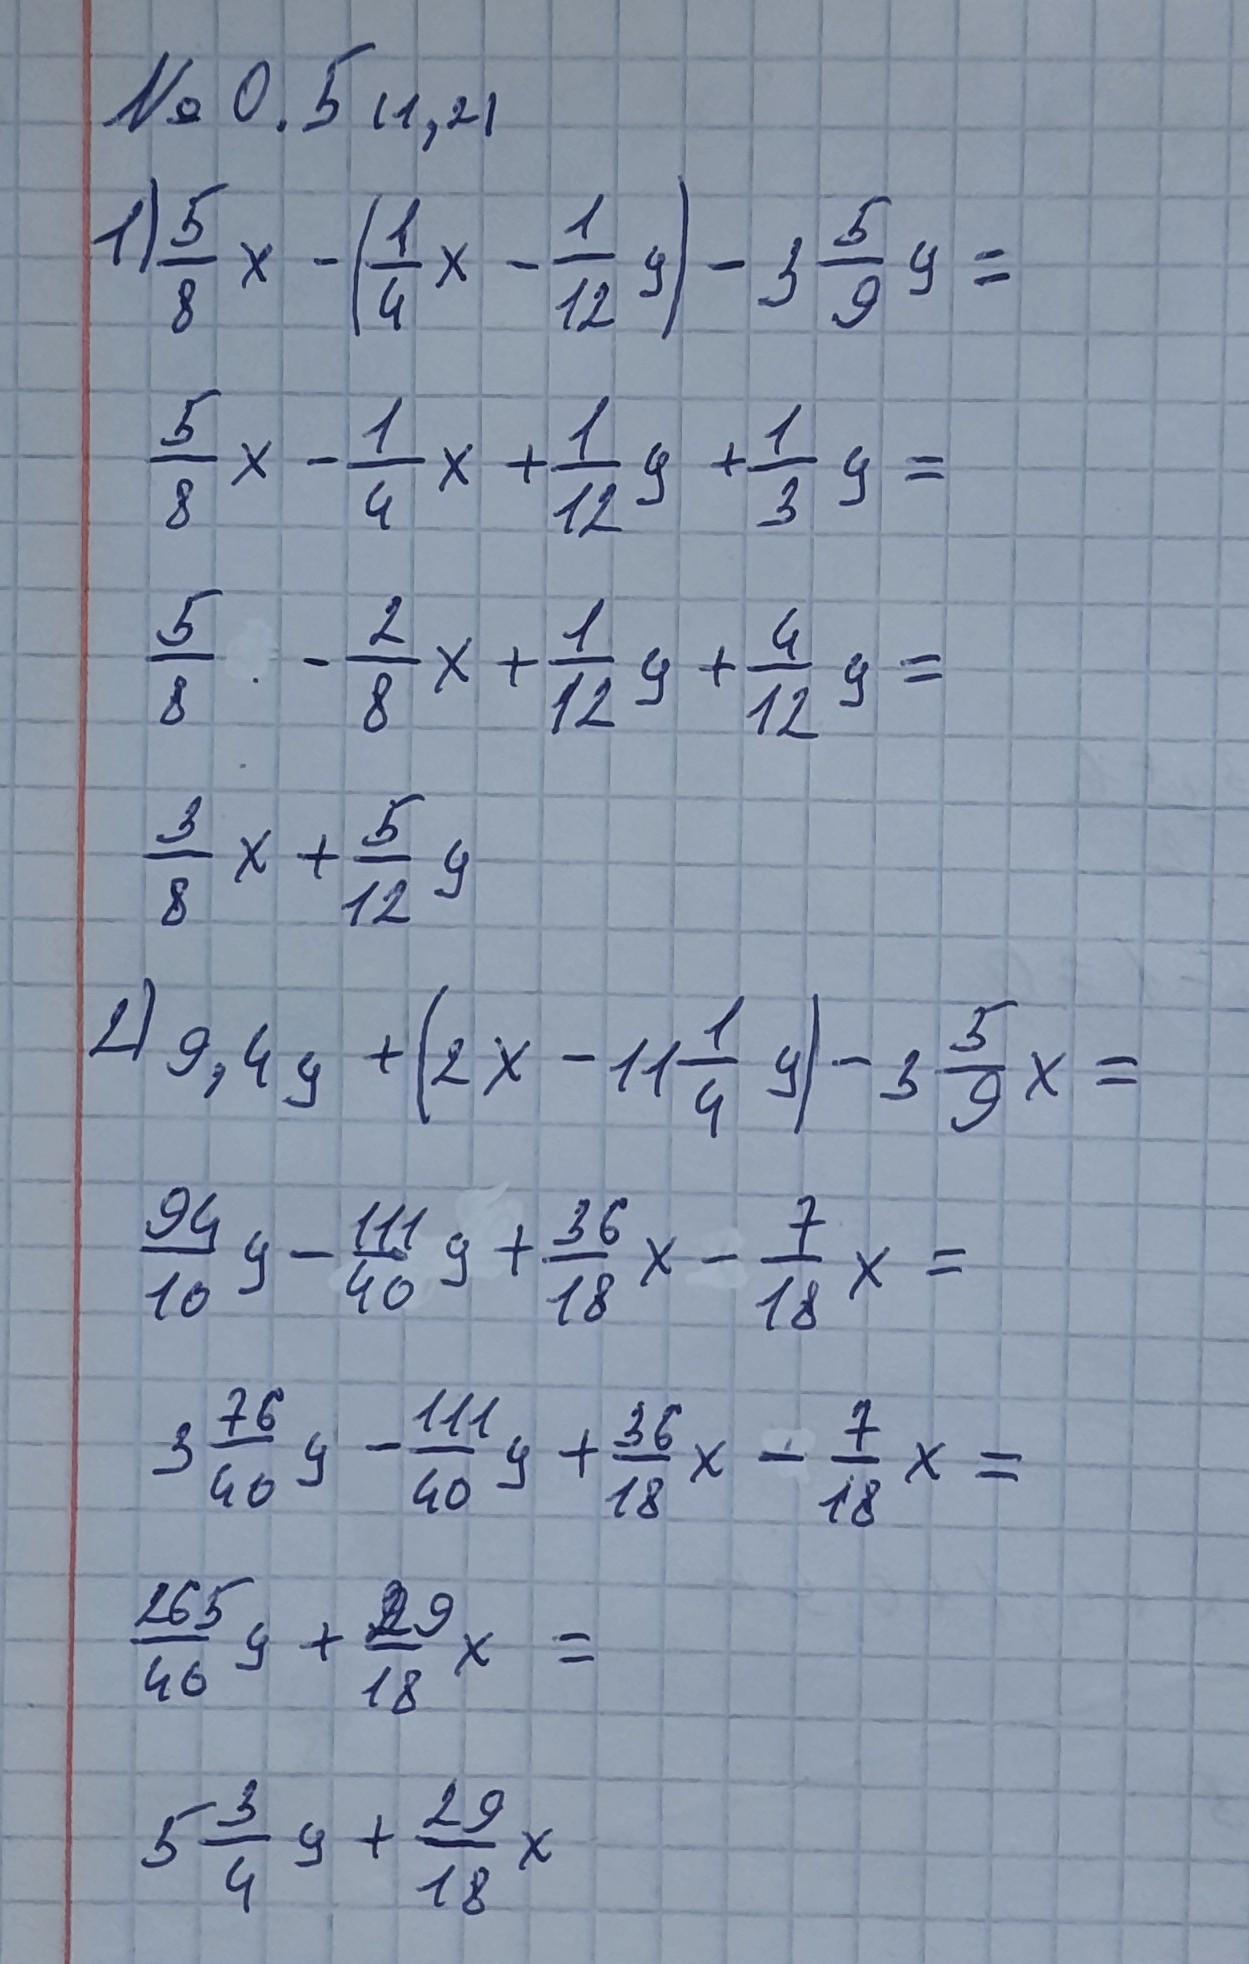 № 0.5 (1,2)
1) 5/8 x - (1/4 x - 1/12 y) - 3 5/9 y =
5/8 x - 1/4 x + 1/12 y + 1/3 y =
5/8 - 2/8 x + 1/12 y + 4/12 y =
3/8 x + 5/12 y
2) 9,4y + (2x - 11 1/4 y) - 3 5/9 x =
94/10 y - 111/40 y + 36/18 x - 7/18 x =
3 76/40 y - 111/40 y + 36/18 x - 7/18 x =
265/40 y + 29/18 x =
5 3/4 y + 29/18 x